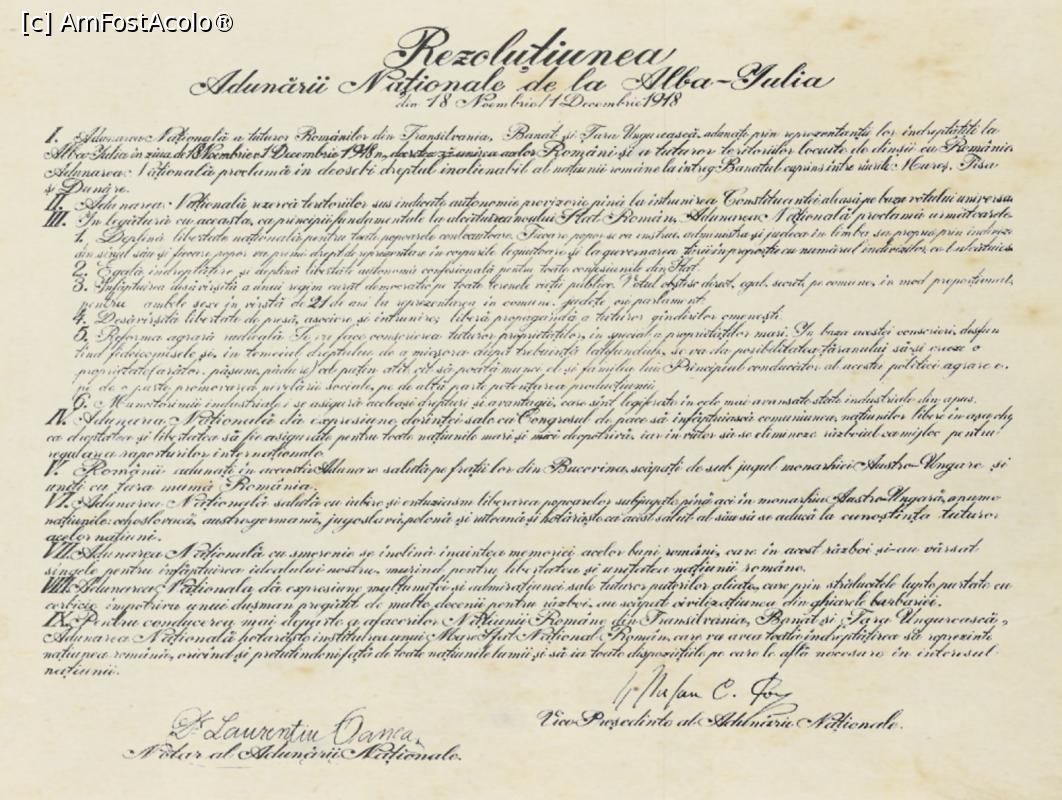 [c] AmFostAcolo®
Rezoluțiunea
Adunării Naționale de la Alba-Iulia
din 18 Noembrie/1 Decembrie 1918
I. Adunarea Națională a tuturor Românilor din Transilvania, Banat și Țara Ungurească, adunați prin reprezentanții lor îndreptățiți la
Alba-Iulia în ziua de 18 Noembrie/1 Decembrie 1918, decretează unirea acelor Români și a tuturor teritoriilor locuite de dânșii cu România.
Adunarea Națională proclamă în deosebi dreptul inalienabil al națiunii române la întreg Banatul cuprins între râurile Mureș, Tisa
și Dunăre.
II. Adunarea Națională rezervă teritoriilor sus indicate autonomie provizorie până la întrunirea Constituantei aleasă pe baza votului universal
III. În legătură cu aceasta, ca principii fundamentale la alcătuirea noului Stat Român, Adunarea Națională proclamă următoarele:
1. Deplină libertate națională pentru toate popoarele conlocuitoare. Fiecare popor se va instrui, administra și judeca în limba sa proprie prin indivizi
din sînul său și fiecare popor va primi drept de reprezentare în corpurile legiuitoare și la guvernarea țării în proporție cu numărul indivizilor ce-l alcătuiesc
2. Egală îndreptățire și deplină libertate autonomă confesională pentru toate confesiunile din Stat.
3. Înfăptuirea desăvîrșită a unui regim curat democratic pe toate terenele vieții publice. Votul obștesc, direct, egal, secret, pe comune, în mod proporțional,
pentru ambele sexe în vîrstă de 21 de ani la reprezentarea în comune, județe ori parlament.
4. Desăvîrșită libertate de presă, asociere și întrunire; liberă propagandă a tuturor gîndirilor omenești.
5. Reforma agrară radicală. Se va face conscrierea tuturor proprietăților, în special a proprietăților mari. În baza acestei conscrieri, desfiin
țînd fideicomisele și, în temeiul dreptului de a micșora după trebuință latifundiile, se va da posibilitatea țăranului să-și creeze o
proprietate (arător, pășune, pădure) cel puțin atît cît să poată munci el și familia lui. Principiul conducător al acestei politici agrare e,
pe de o parte promovarea nivelării sociale, pe de altă parte potențarea producțiunii
6. Muncitorimii industriale i se asigură aceleași drepturi și avantagii, care sînt legiferate în cele mai avansate state industriale din apus.
IV. Adunarea Națională dă expresiune dorinței sale ca Congresul de pace să înfăptuiască comuniunea națiunilor libere în așa chip,
ca dreptatea și libertatea să fie asigurate pentru toate națiunile mari și mici deopotrivă, iar în viitor să se elimineze războiul ca mijloc pentru
regularea raporturilor internaționale
V. Românii adunați în aceasta Adunare salută pe frații lor din Bucovina, scăpați de sub jugul monarhiei Austro-Ungare și
uniți cu țara mumă România.
VI. Adunarea Națională salută cu iubire și entuziasm liberarea popoarelor subjugate pînă aci în monarhia Austro-Ungară, anume
națiunile: cehoslovacă, austrogermană, jugoslavă, polonă și ruteană și hotărăște ca acest salut al său să se aducă la cunoștința tuturor
acelor națiuni.
VII. Adunarea Națională cu smerenie se închină înaintea memoriei acelor bravi români, care în acest război și-au vărsat
sîngele pentru înfăptuirea idealului nostru, murind pentru libertatea și unitatea națiunii române.
VIII. Adunarea Națională dă expresiune mulțumitei și admirațiunei sale tuturor puterilor aliate, care prin strălucitele lupte purtate cu
cerbicie împotriva unui dușman pregătit de multe decenii pentru război, au scăpat civilizațiunea din ghiarele barbariei.
IX. Pentru conducerea mai departe a afacerilor Națiunii Române din Transilvania, Banat și Țara Ungurească,
Adunarea Națională hotărăște instituirea unui Mare Sfat Național Român, care va avea toată îndreptățirea să reprezinte
națiunea română, oricînd și pretutindeni față de toate națiunile lumii și să ia toate dispozițiile pe care le află necesare în interesul
națiunii.
Ștefan C. Pop
Vice Președinte al Adunării Naționale.
Dr Laurențiu Oanea
Notar al Adunării Naționale.